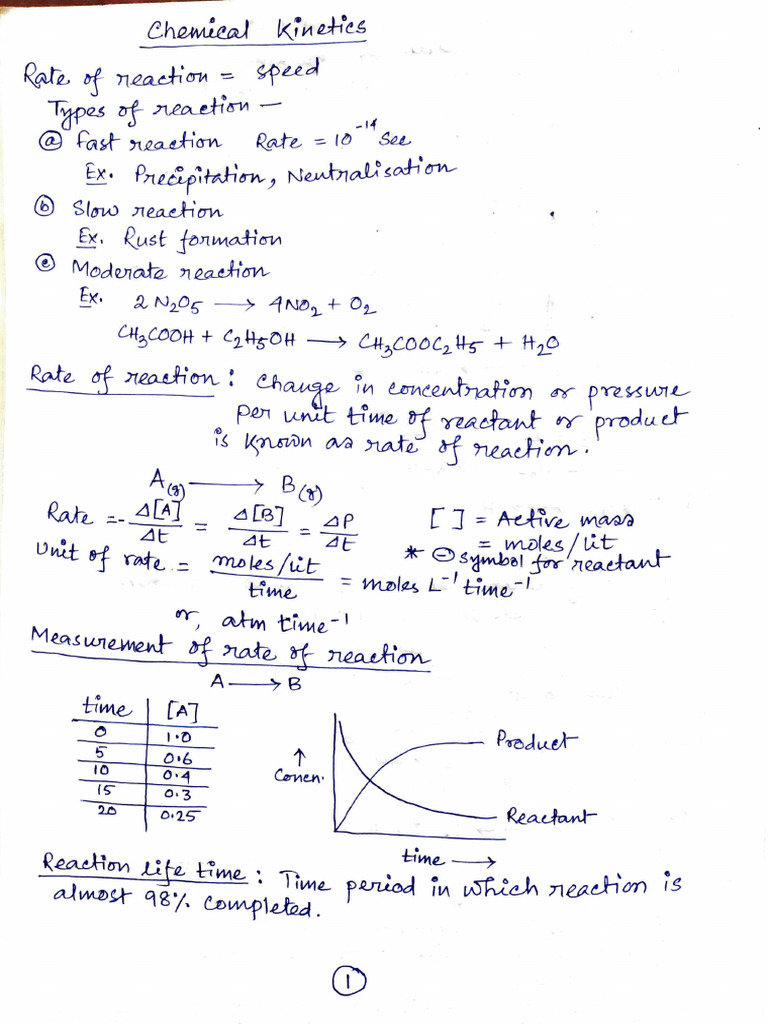 Chemical Kinetics
Rate of reaction = speed
Types of reaction —
ⓐ Fast reaction Rate = 10⁻¹⁴ Sec
Ex. Precipitation, Neutralisation
ⓑ Slow reaction
Ex. Rust formation
ⓒ Moderate reaction
Ex. 2 N₂O₅ ⟶ 4NO₂ + O₂
CH₃COOH + C₂H₅OH ⟶ CH₃COOC₂H₅ + H₂O
Rate of reaction : Change in concentration or pressure
per unit time of reactant or product
is known as rate of reaction.
A(g) ⟶ B(g)
Rate = -Δ[A]/Δt = Δ[B]/Δt = ΔP/Δt
[ ] = Active mass
= moles/lit
* ⊖ symbol for reactant
Unit of rate = moles/lit / time = moles L⁻¹ time⁻¹
or, atm time⁻¹
Measurement of rate of reaction
A ⟶ B
time [A]
0 1.0
5 0.6
10 0.4
15 0.3
20 0.25
↑
Concn.
Product
Reactant
time ⟶
Reaction life time : Time period in which reaction is
almost 98% completed.
①